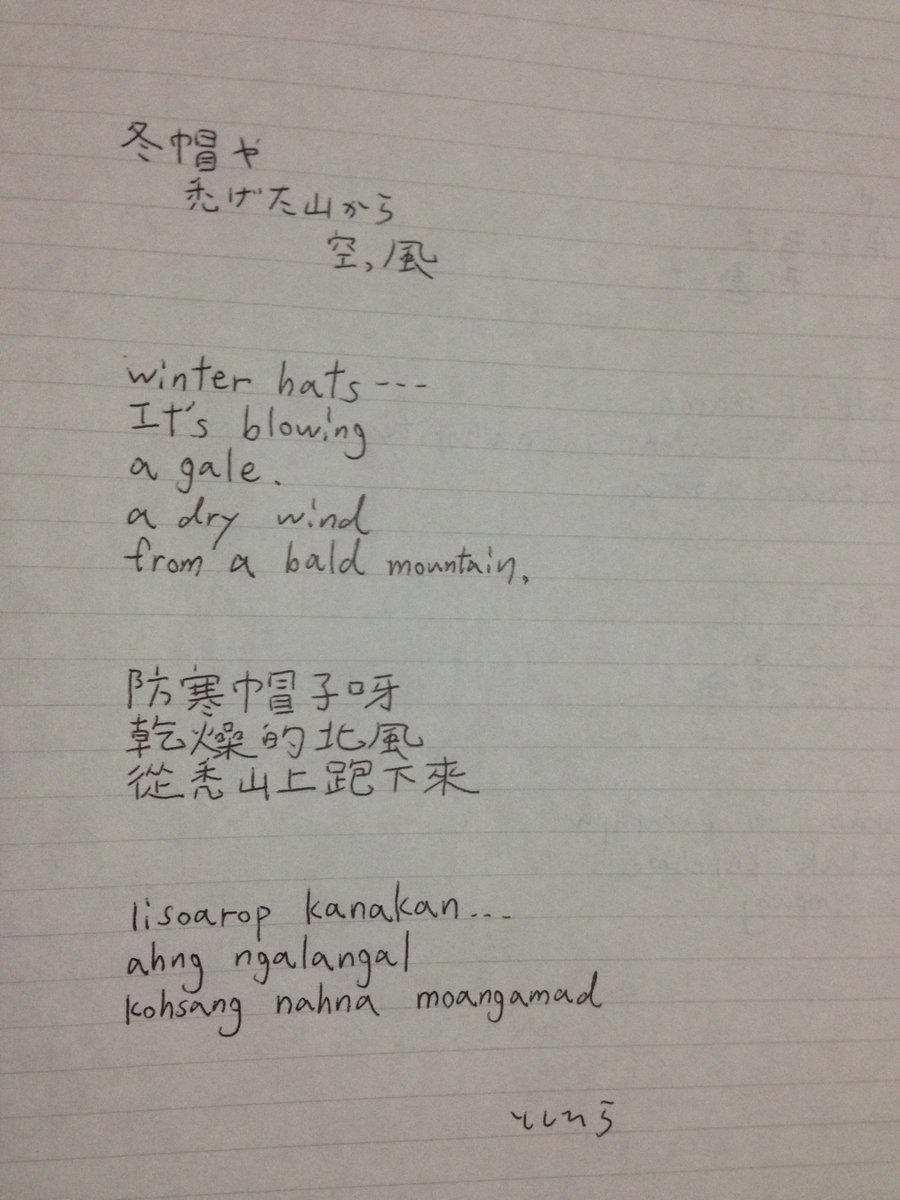 冬帽や
禿げた山から
空っ風
winter hats---
It's blowing
a gale.
a dry wind
from a bald mountain.
防寒帽子呀
乾燥的北風
從禿山上跑下來
lisoarop kanakan...
ahng ngalangal
kohsang nahna moangamad